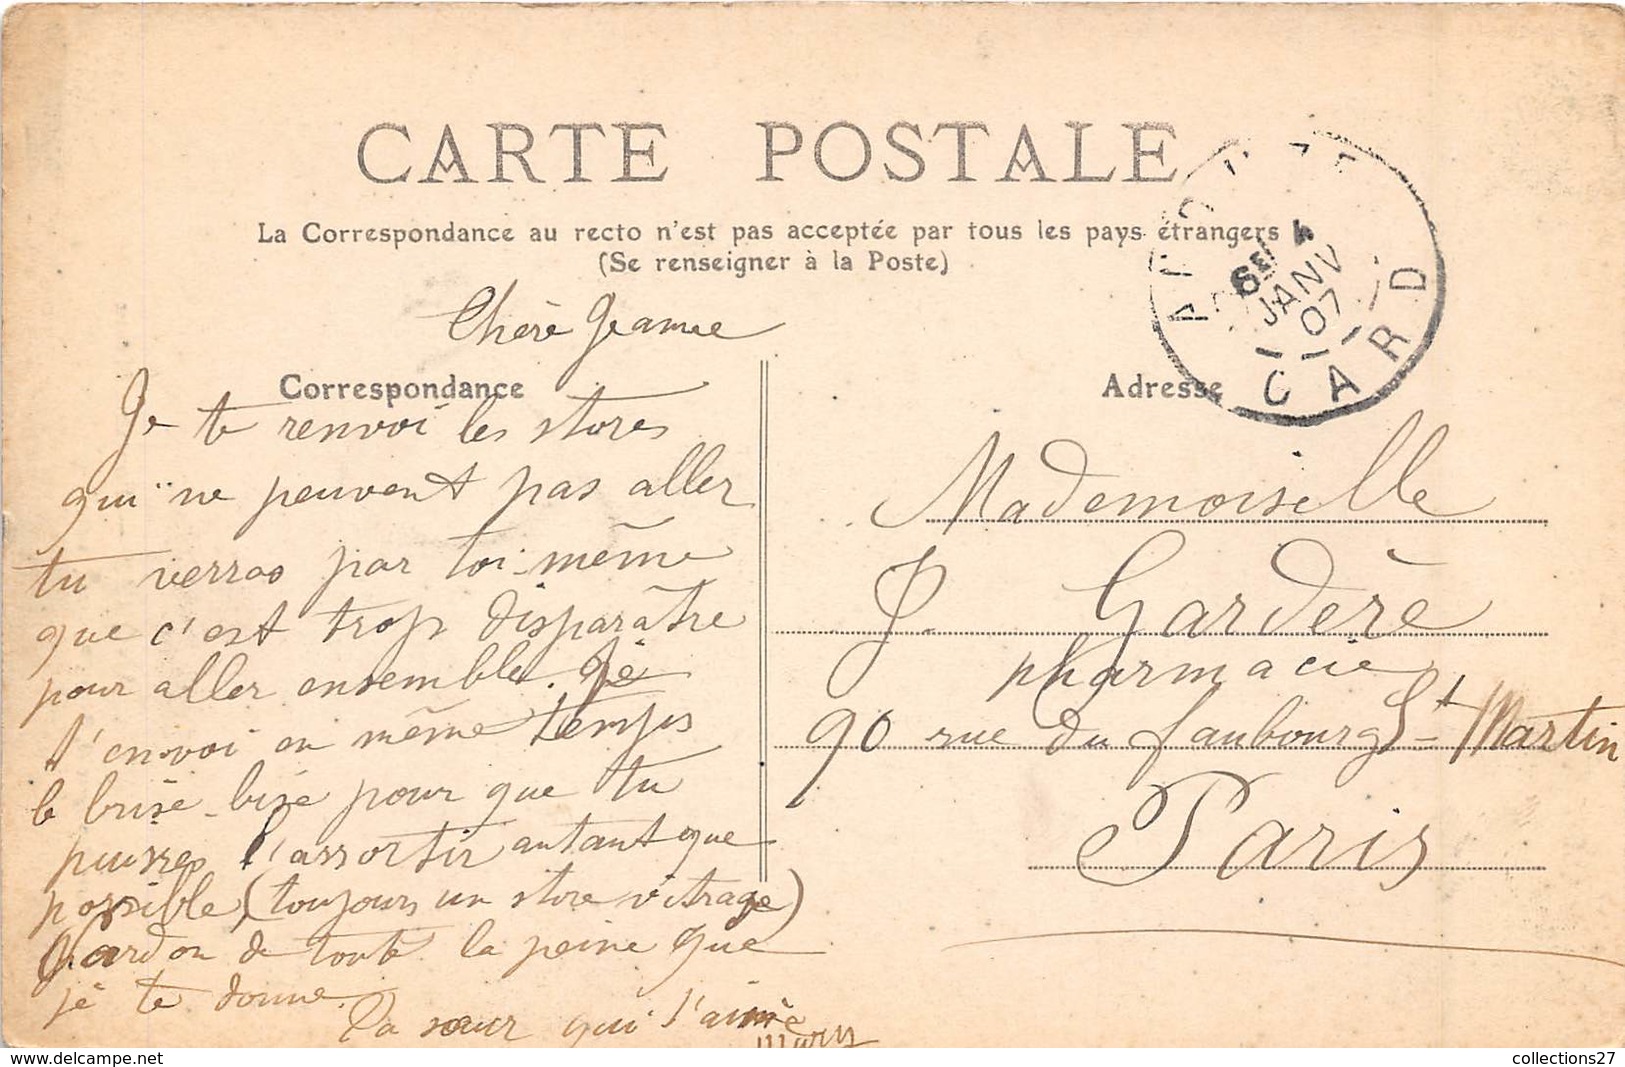 CARTE POSTALE
La Correspondance au recto n'est pas acceptée par tous les pays étrangers
(Se renseigner à la Poste)
Chère Jeanne
Correspondance
Je te renvoi les stores
qui ne peuvent pas aller
tu verras par toi-même
que c'est trop disparâtre
pour aller ensemble. Je
t'envoi en même temps
le brise-bise pour que tu
puisses l'assortir autant que
possible (toujours un store vitrage)
Pardon de toute la peine que
je te donne.
Ta sœur qui t'aime
Adresse
Mademoiselle
J. Gardère
pharmacie
90 rue du faubourg St-Martin
Paris
6E 4
JANV
07
GARD
collections27